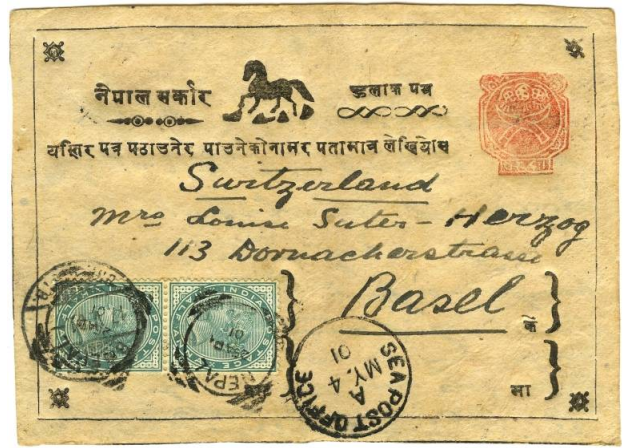 नेपाल सर्कार
हुलाक पत्र
यसभित्र पत्र पठाउनेर पाउनेकोनामर पतामात्र लेखियोस
Switzerland
Mrs Louise Suter-Herzog
113 Dornacherstrasse
Basel
कं
मा
INDIA
NEPAL
SEA POST OFFICE
A
MY. 4
01